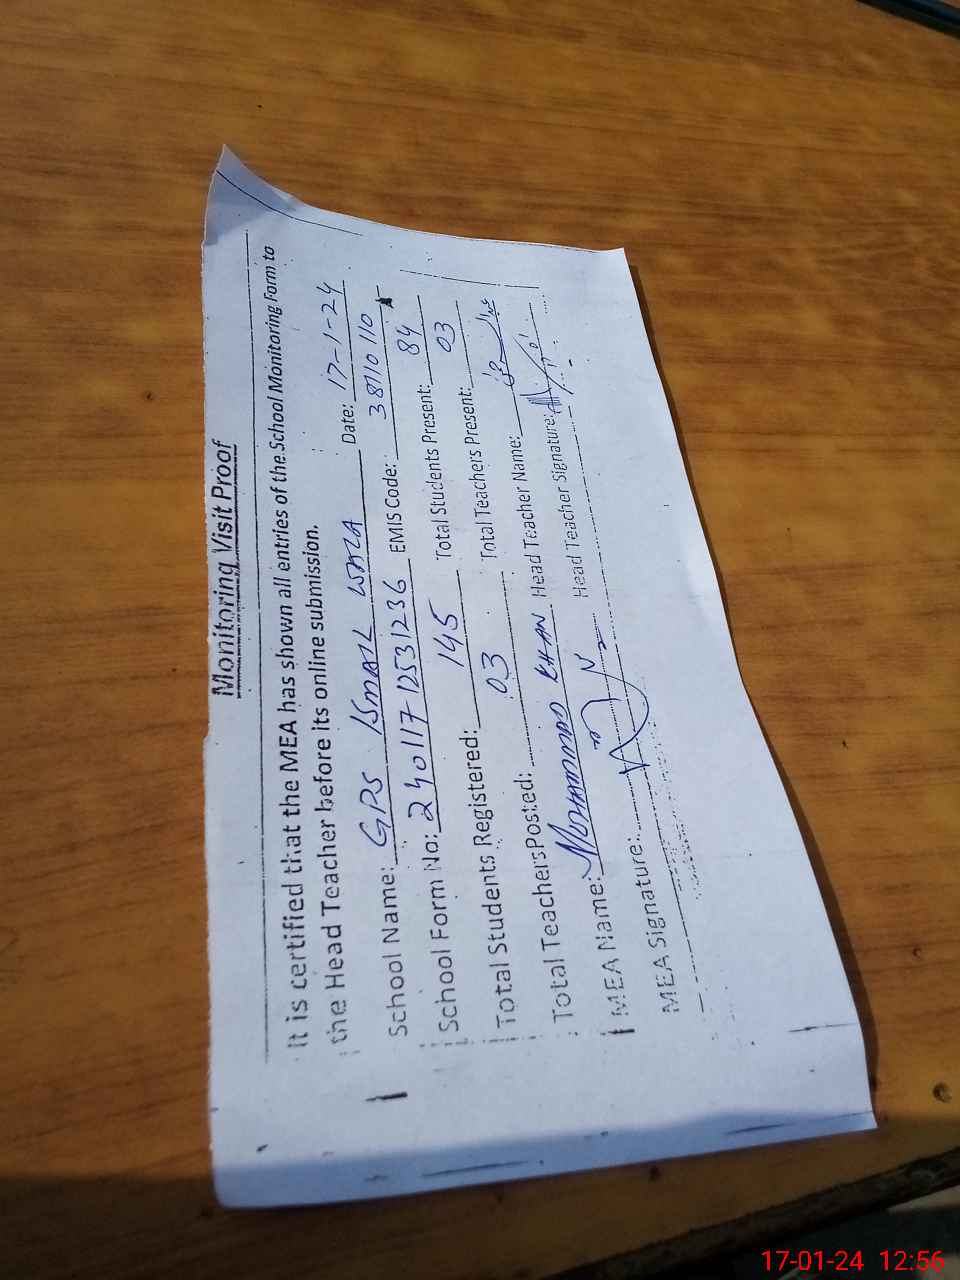 Monitoring Visit Proof
It is certified that the MEA has shown all entries of the School Monitoring Form to
the Head Teacher before its online submission.
School Name: GPS ISMAIL Date: 17-1-24
School Form No: 240117 12531236 EMIS Code: 38110110
Total Students Registered: 145 Total Students Present: 84
Total Teachers Posted: 03 Total Teachers Present: 03
MEA Name: MOHAMMAD KHAN Head Teacher Name:
MEA Signature: Head Teacher Signature:
17-01-24 12:56